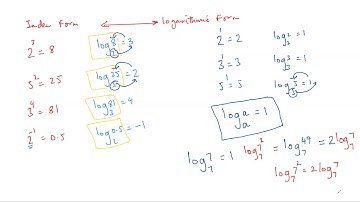 Index Form ↔ Logarithmic Form
2³ = 8
log₂8 = 3
5² = 25
log₅25 = 2
3⁴ = 81
log₃81 = 4
2⁻¹ = 0.5
log₂0.5 = -1
2¹ = 2
log₂2 = 1
3¹ = 3
log₃3 = 1
5¹ = 5
log₅5 = 1
logₐa = 1
log₇7 = 1
log₇7² = log₇49 = 2log₇7
log₇7² = 2log₇7